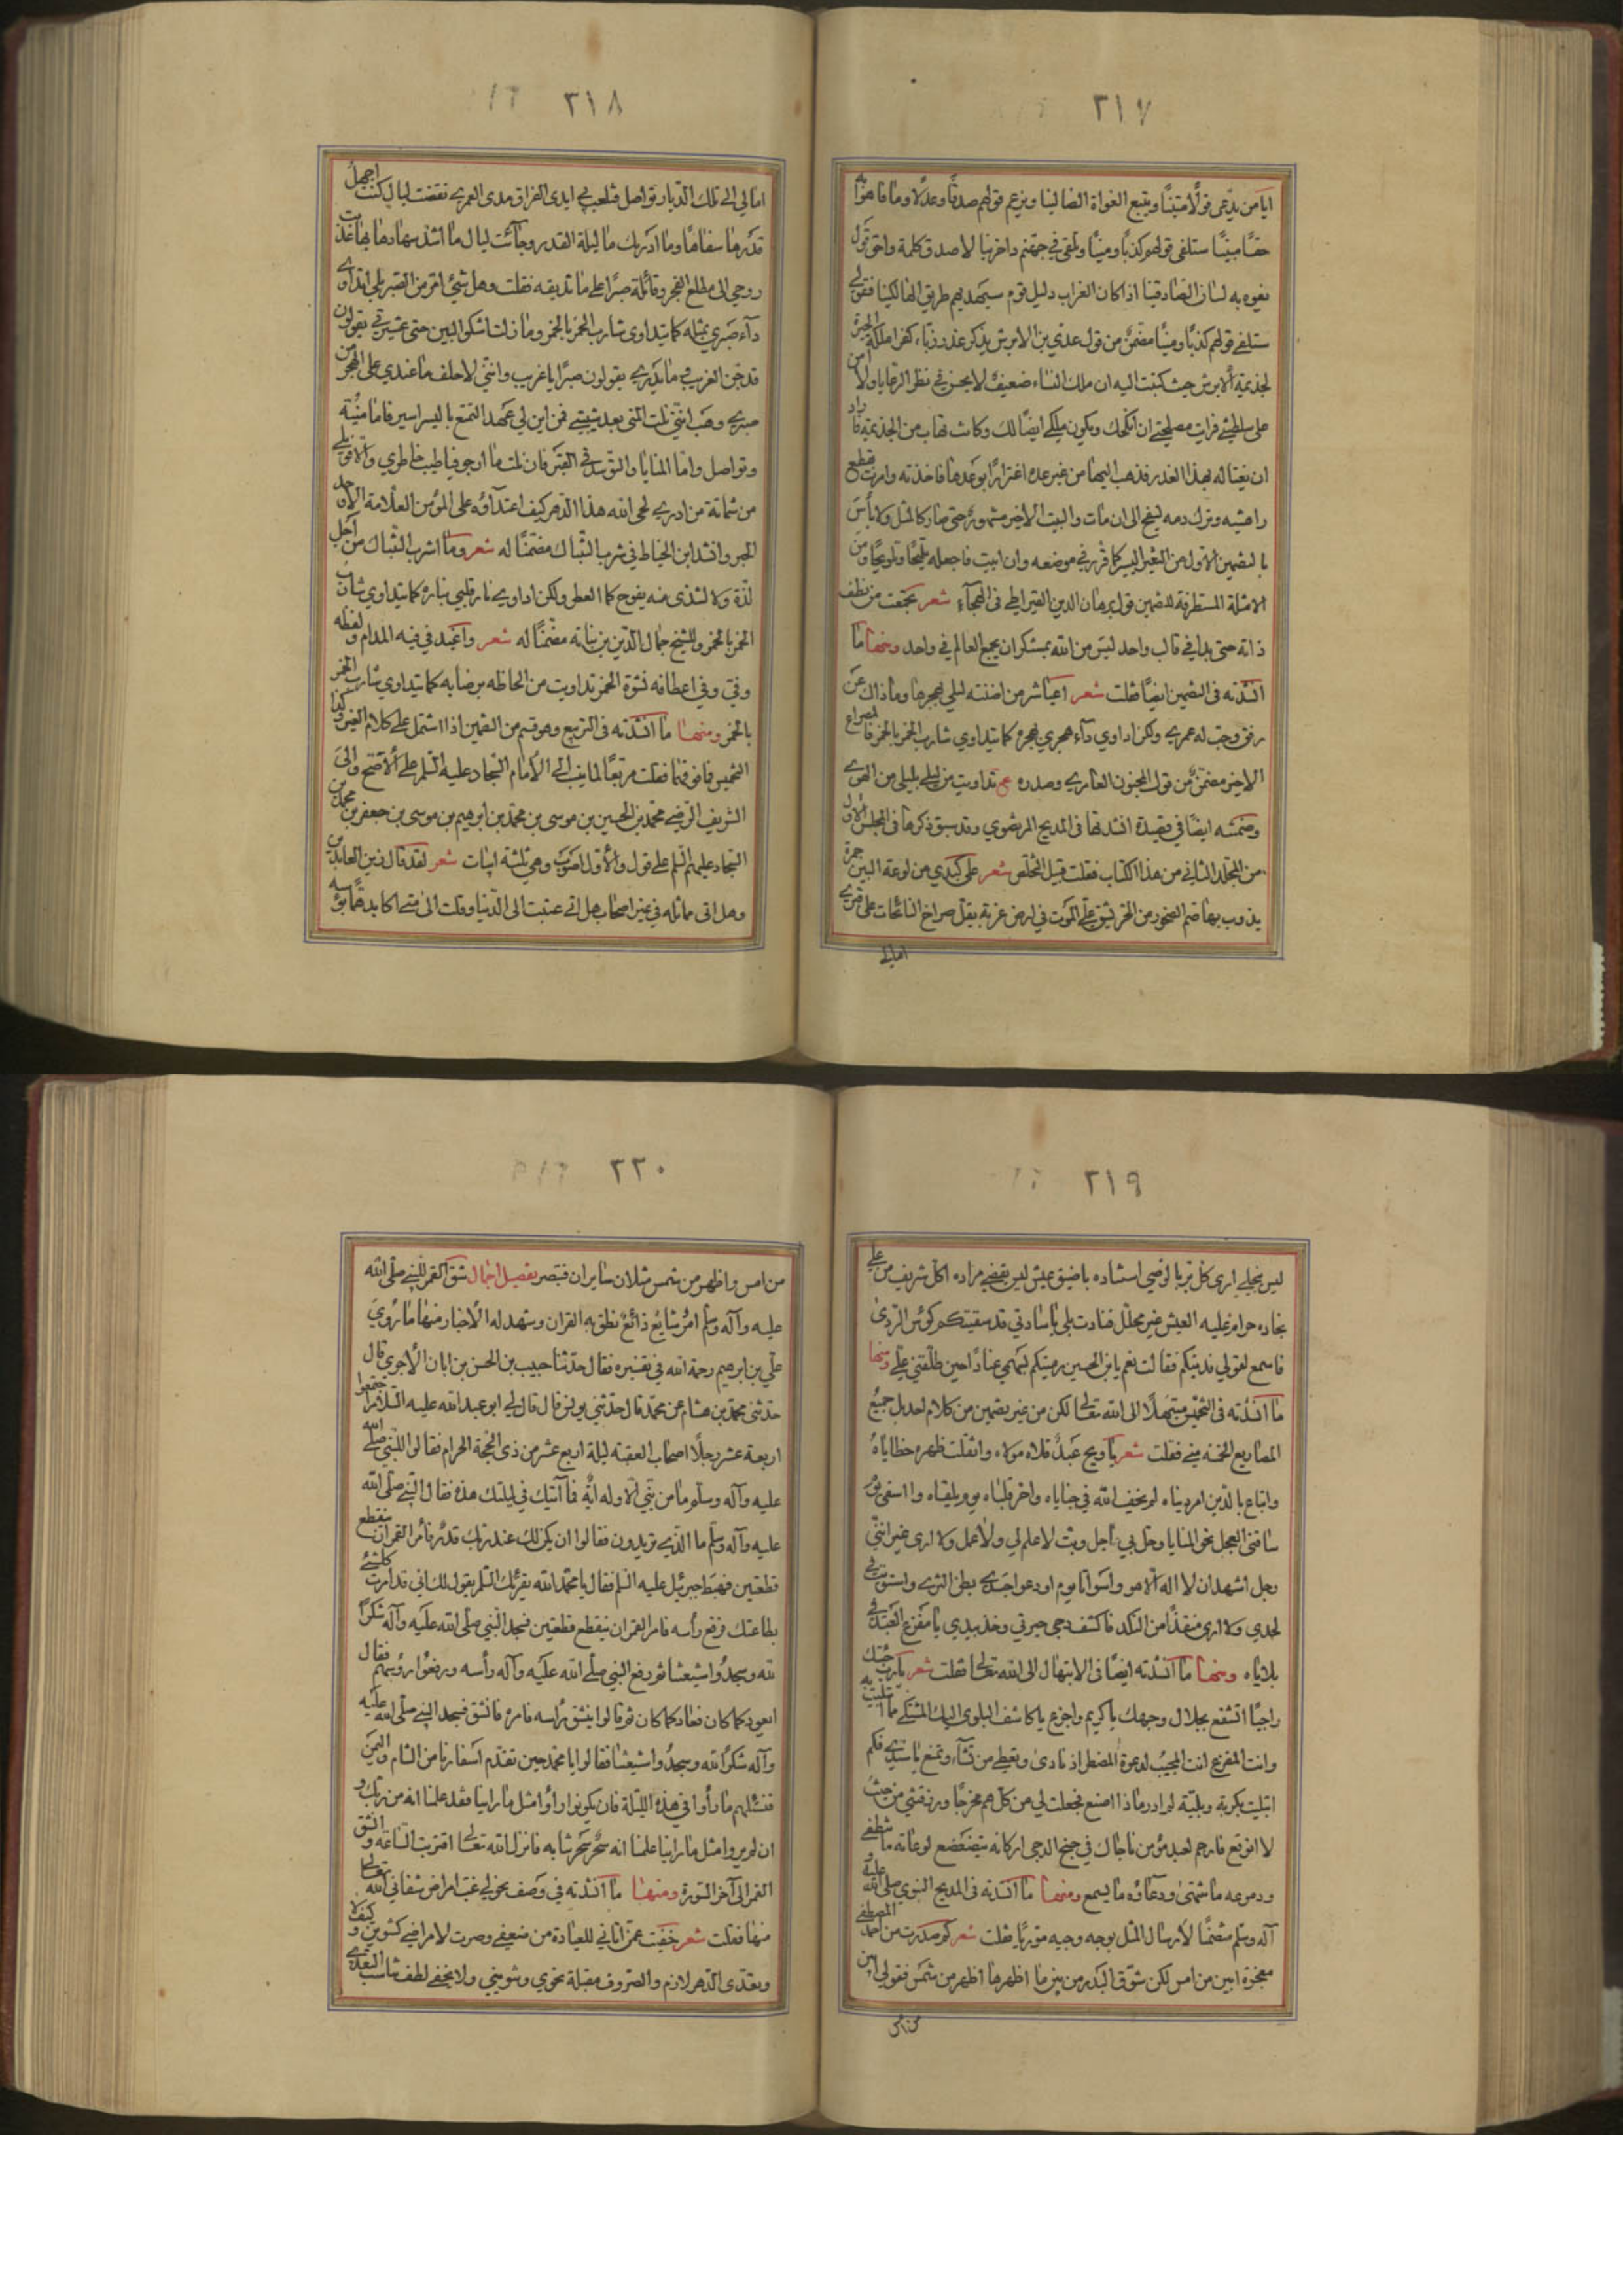 ٢١٧
ايا من يدعى قولا متينا ويتبع الغواة الضالينا ويزعم قولهم صدقا وعدلا وما فاهوا به
حقا مبينا ستلفى قولهم كذبا ومينا وتلقى في جهنم داخرينا لاصدق كلمة واحق قول
يفوه به لسان الصادقينا اذا كان الغراب دليل قوم سيهديهم طريق الهالكينا فقولي
ستلفي قولهم كذبا ومينا مضمن من قول عدي بن الابرش يذكر غدر زباء كفرا ملكة الجيرة
لجذيمة الابرش حيث كتبت اليه ان ملك النساء ضعيف لا يحسن في نظر الرعايا ولا امن
على سلطنتي فرايت مصلحتي ان انكحك ويكون ملكي ايضا لك وكانت تهاب من الجذيمة فاراد
ان يغتاله بهذا الغدر فذهب اليها من غير عدة اغترارا بوعدها فاخذته وامرت بقطع
راهشيه وترك دمه ليفج الى ان مات والبيت الاخير مشهور حتى صار كالمثل ولا باس
بالتضمين الاول من الغير اليسير كما قرر في موضعه وان ابيت فاجعله تلميحا وتلويحا ومن
الامثلة المستطرفة للتضمين قول برهان الدين القيراطي في الهجاء شعر تجمعت من نطف
ذاته حتى بدا في قالب واحد ليس من الله بمستنكر ان يجمع العالم في واحد ومنها ما
انشدته في التضمين ايضا فقلت شعر اعباشر من اضنته ليلى بهجرها وما ذاك عن
رفق وجب له عمري ولكن اداوي داء هجري بهجره كما يتداوي شارب الخمر بالخمر فالمصراع
الاخير مضمن من قول المجنون العامري وصدره ع تداويت من ليلى بليلى من الهوى
وضمنته ايضا في قصيدة انشدتها في المديح المرضوي وقد سبق ذكرها في المجلس الاول
من المجلد الثاني من هذا الكتاب فقلت قبل التخلص شعر على كبدي من لوعة البين جمرة
يذوب بها صم الصخور من الحر يشق علي الموت في ارض غربة يقل صراخ النائحات على قبري
امالي
٢١٨
امالي الى تلك الديار تواصل فتلعب بي ايدي الفراق مدى العمر تقضت ليال كنت اجهل
قدرها سفاها وما ادريك ما ليلة القدر وجائت ليال ما اشد سهادها بها عذبت
روحي الى مطلع الفجر وقائلة صبرا على ما تذيقه فقلت وهل شيء امر من الصبر بلى ابتداوي
داء صبري بمثله كما يتداوى شارب الخمر بالخمر وما زلت اشكو البين حتى عشيرتي يقولون
قد جن الغريب ما يدري يقولون صبرا يا غريب وانني لاحلف ما عندي على الهجر من
صبري وهب انني نلت المنى بعد شيبتي فمن اين لي عهد التمتع باليسر اسير فاما منية
وتواصل واما المنايا والتوسد في القبر فان نلت ما ارجو فيا طيب خاطري والا فويلي
من شماتة من ادري لحى الله هذا الدهر كيف اعتداؤه على المؤمن العلامة الاوحد
الحبر وانشد ابن الخياط في شرب التنباك مضمنا له شعر وما اشرب التنباك من اجل
لذة ولا لشذى منه يفوح كما العطر ولكن اداوي نار قلبي بناره كما يتداوي شارب
الخمر بالخمر وللشيخ جمال الدين بن نباته مضمنا له شعر واغيد في فيه المدام ولفظه
وفي وفي اعطافه نشوة الخمر تداويت من الحاظه برضابه كما يتداوي شارب الخمر
بالخمر ومنها ما انشدته في التربيع وهو قسم من التضمين اذا اشتمل على كلام الغير وكذا
التخميس فما فوقها فقلت مربعا لما ينسب الى الامام السجاد عليه السلم على الاصح والى
الشريف الرضي محمد بن الحسين بن موسى بن محمد بن ابرهيم بن موسى بن جعفر بن محمد بن
السجاد عليهم السلم على قول والاول اصوب وهي ثلثة ابيات شعر لقد قال زين العابدين
وهل اتى مماثله في غير اصحاب هل اتى عتبت الى الدنيا وقلت الى متى اكابد هما بؤسه
٢١٩
ليس ينجلي ارى كل قربا لوضي استشاده باضيق عيش ليس يقضي مراده اكل شريف من علي
نجاده حرام عليه العيش غير محلل فنادت بلى يا سادتي قد سقيتكم كؤس الردى
فاسمع لقولي فديتكم فقالت نعم يا ابن الحسين رميتكم بسهمي عنادا حين طلقني علي ومنها
ما انشدته في التخميس مبتهلا الى الله تعالى لكن من غير تضمين من كلام احد بل جميع
المصاريع الخمسة مني فقلت شعر يا ويح عبد قلاه مولاه واثقلت ظهره خطاياه
وابتاع بالدين امر دنياه لم يخف الله في جناياه واحر قلباه يوم يلقاه وا اسفي
ساقني العجل نحو المنايا وحل بي اجل وبت لا علم لي ولا عمل ولا ارى غير انني
وجل اشهد ان لا اله الا هو واسواتا يوم اودعوا جسدي بطن الثرى واستوت
لحدي ولا ارى منقذا من النكد فاكشف دجى حيرتي وخذ بيدي يا مفزع العبد في
بلاياه ومنها ما انشدته ايضا في الابتهال الى الله تعالى فقلت شعر يا رب جئتك
راجيا اتشفع بجلال وجهك يا كريم واجزع يا كاشف البلوى اليك المشتكى ما ابتليت به
وانت المفزع انت المجيب لدعوة المضطر اذ نادى وتعطي من تشاء وتمنع يا سيدي فكم
ابتليت بكربة وبلية لم ادر ماذا اصنع فجعلت لي من كل هم مخرجا ورزقتني من حيث
لا اتوقع فارحم لعبد مؤمن ناجاك في جنح الدجى اركانه يتضعضع لوعاته ما تنطفي
ودموعه ما شمتنى ودعاؤه ما يسمع ومنها ما انشدته في المديح النبوي صلى الله عليه و
آله وسلم متضمنا لارسال المثل بوجه وجيه موريا فقلت شعر كم صدرت من احمد المصطفى
معجزة ابين من امس لكن شق البدر من بينها اظهرها اظهر من شمس فقولي ابين
من امس
٢٢٠
من امس واظهر من شمس مثلان سايران فتبصر تفصيل اجمال شق القمر للنبي صلى الله
عليه وآله وسلم امر شايع ذائع نطق به القران وشهد له الاخبار منها ما روي
علي بن ابرهيم رحمة الله في تفسيره فقال حدثنا حبيب بن الحسن بن ابان الاجري قال
حدثني محمد بن هشام عن محمد قال حدثني يونس قال قال لي ابو عبد الله عليه السلام اجتمعوا
اربعة عشر رجلا اصحاب العقبة ليلة اربع عشر من ذي الحجة الحرام فقالوا للنبي صلى الله
عليه وآله وسلم ما من نبي الا وله اية فما آيتك في ليلتك هذه فقال النبي صلى الله
عليه وآله وسلم ما الذي تريدون فقالوا ان يكن لك عند ربك قدر فأمر القمر ان ينقطع
قطعتين فهبط جبرئيل عليه السلم فقال يا محمد الله يقرئك السلم يقول لك اني قد امرت كلشئ
بطاعتك فرفع رأسه فامر القمر ان ينقطع قطعتين فسجد النبي صلى الله عليه وآله شكرا
لله وسجدوا شيعتنا ثم رفع النبي صلى الله عليه وآله رأسه ورفعوا رؤسهم فقال
ايعود كما كان فعاد كما كان ثم قالوا ينشق رأسه فامره فانشق فسجد النبي صلى الله عليه
وآله شكرا لله وسجدوا شيعتنا فقالوا يا محمد حين تقدم اسفارنا من الشام واليمن
فنسئلهم ما رأوا في هذه الليلة فان يكونوا رأوا مثل ما راينا فقد علمنا انه من ربك و
ان لم يروا مثل ما راينا علمنا انه سحر سحرتنا به فانزل الله تعالى اقتربت الساعة وانشق
القمر الى آخر السورة ومنها ما انشدته في وصف نحولي غب امراض شفاني الله تعالى
منها فقلت شعر خفيت عمن اتاني للعيادة من ضعفي وصرت لامراضي كشوين وكيف لا
وتعدى الدهر لازم والصروف مقبلة نحوي وشويني ولا يخفى لطف تناسب التعدي